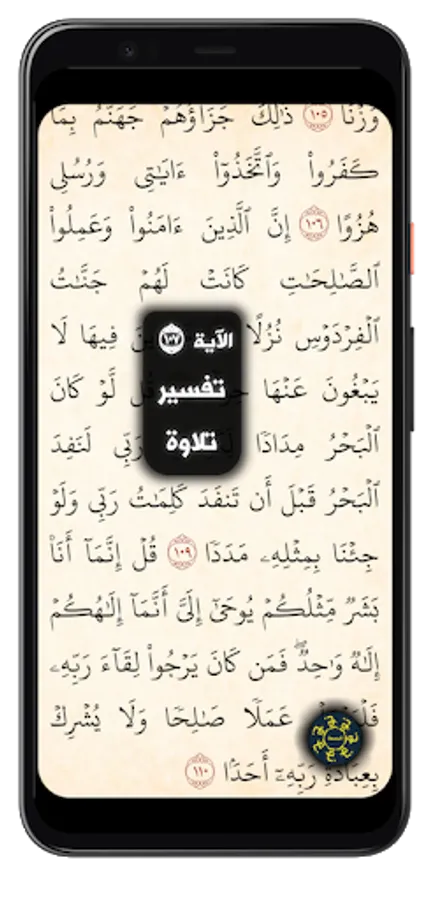 وَزْنًا ١٠٥ ذَٰلِكَ جَزَآؤُهُمْ جَهَنَّمُ بِمَا
كَفَرُوا۟ وَٱتَّخَذُوٓا۟ ءَايَٰتِى وَرُسُلِى
هُزُوًا ١٠٦ إِنَّ ٱلَّذِينَ ءَامَنُوا۟ وَعَمِلُوا۟
ٱلصَّٰلِحَٰتِ كَانَتْ لَهُمْ جَنَّٰتُ
ٱلْفِرْدَوْسِ نُزُلًا فِيهَا لَا
يَبْغُونَ عَنْهَا قُل لَّوْ كَانَ
ٱلْبَحْرُ مِدَادًا رَبِّى لَنَفِدَ
ٱلْبَحْرُ قَبْلَ أَن تَنفَدَ كَلِمَٰتُ رَبِّى وَلَوْ
جِئْنَا بِمِثْلِهِۦ مَدَدًا ١٠٩ قُلْ إِنَّمَآ أَنَا۠
بَشَرٌ مِّثْلُكُمْ يُوحَىٰٓ إِلَىَّ أَنَّمَآ إِلَٰهُكُمْ
إِلَٰهٌ وَٰحِدٌ ۖ فَمَن كَانَ يَرْجُوا۟ لِقَآءَ رَبِّهِۦ
عَمَلًا صَٰلِحًا وَلَا يُشْرِكْ
بِعِبَادَةِ رَبِّهِۦٓ أَحَدًۢا ١١٠
الآية ١٠٧
تفسير
تلاوة